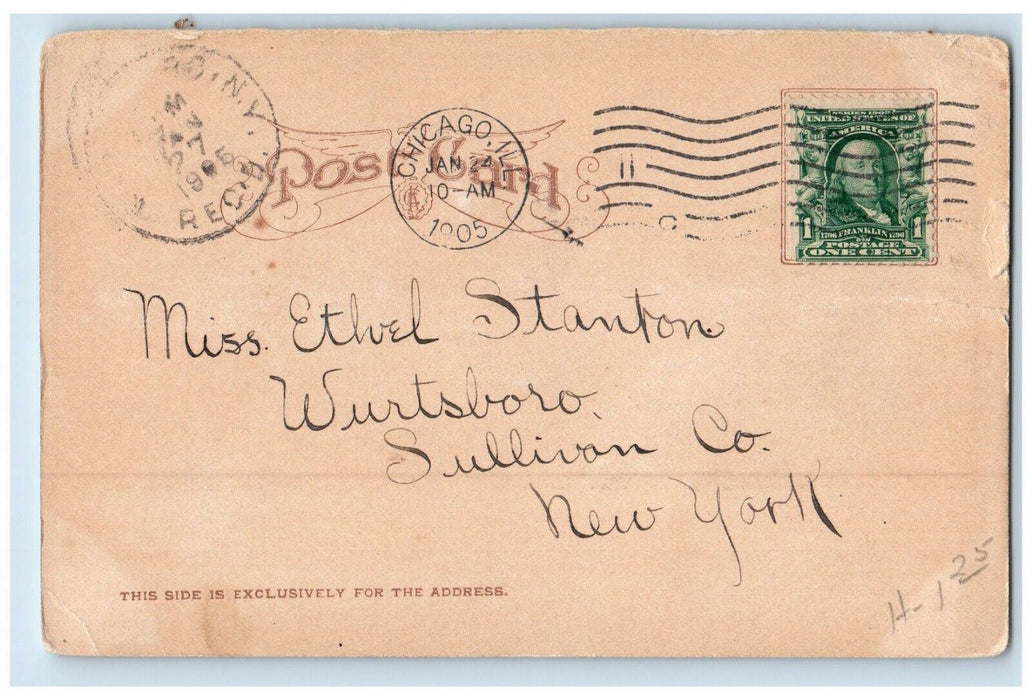 O, N.Y.
JAN
7
REC'D.
Post Card
CHICAGO, ILL
JAN 24
10-AM
1905
11
C
SERIES 1902
UNITED STATES OF
AMERICA
1 FRANKLIN 1
POSTAGE
ONE CENT
Miss. Ethel Stanton
Wurtsboro.
Sullivan Co.
New York
THIS SIDE IS EXCLUSIVELY FOR THE ADDRESS.
H-1 25